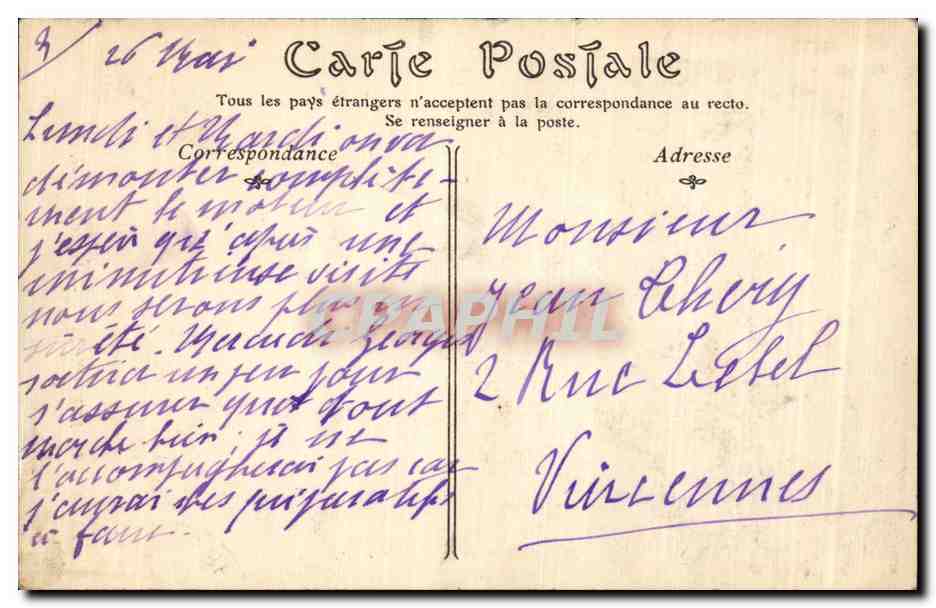 26 Mai
Carte Postale
Tous les pays étrangers n'acceptent pas la correspondance au recto.
Se renseigner à la poste.
Correspondance
Lundi et Mardi on va
démonter complète-
ment le moteur et
j'espère qu'après une
minutieuse visite
nous serons plus en
sûreté. Mercredi Georges
sortira un peu pour
s'assurer que tout
marche bien; je ne
l'accompagnerai pas car
j'aurai des préparatifs
à faire.
Adresse
Monsieur
Jean Thery
2 Rue Lebel
Vincennes
CPAPHIL